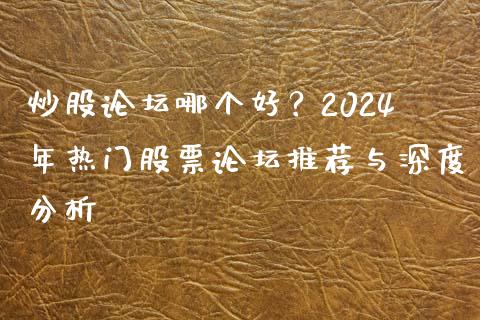 炒股论坛哪个好？2024
年热门股票论坛推荐与深度
分析